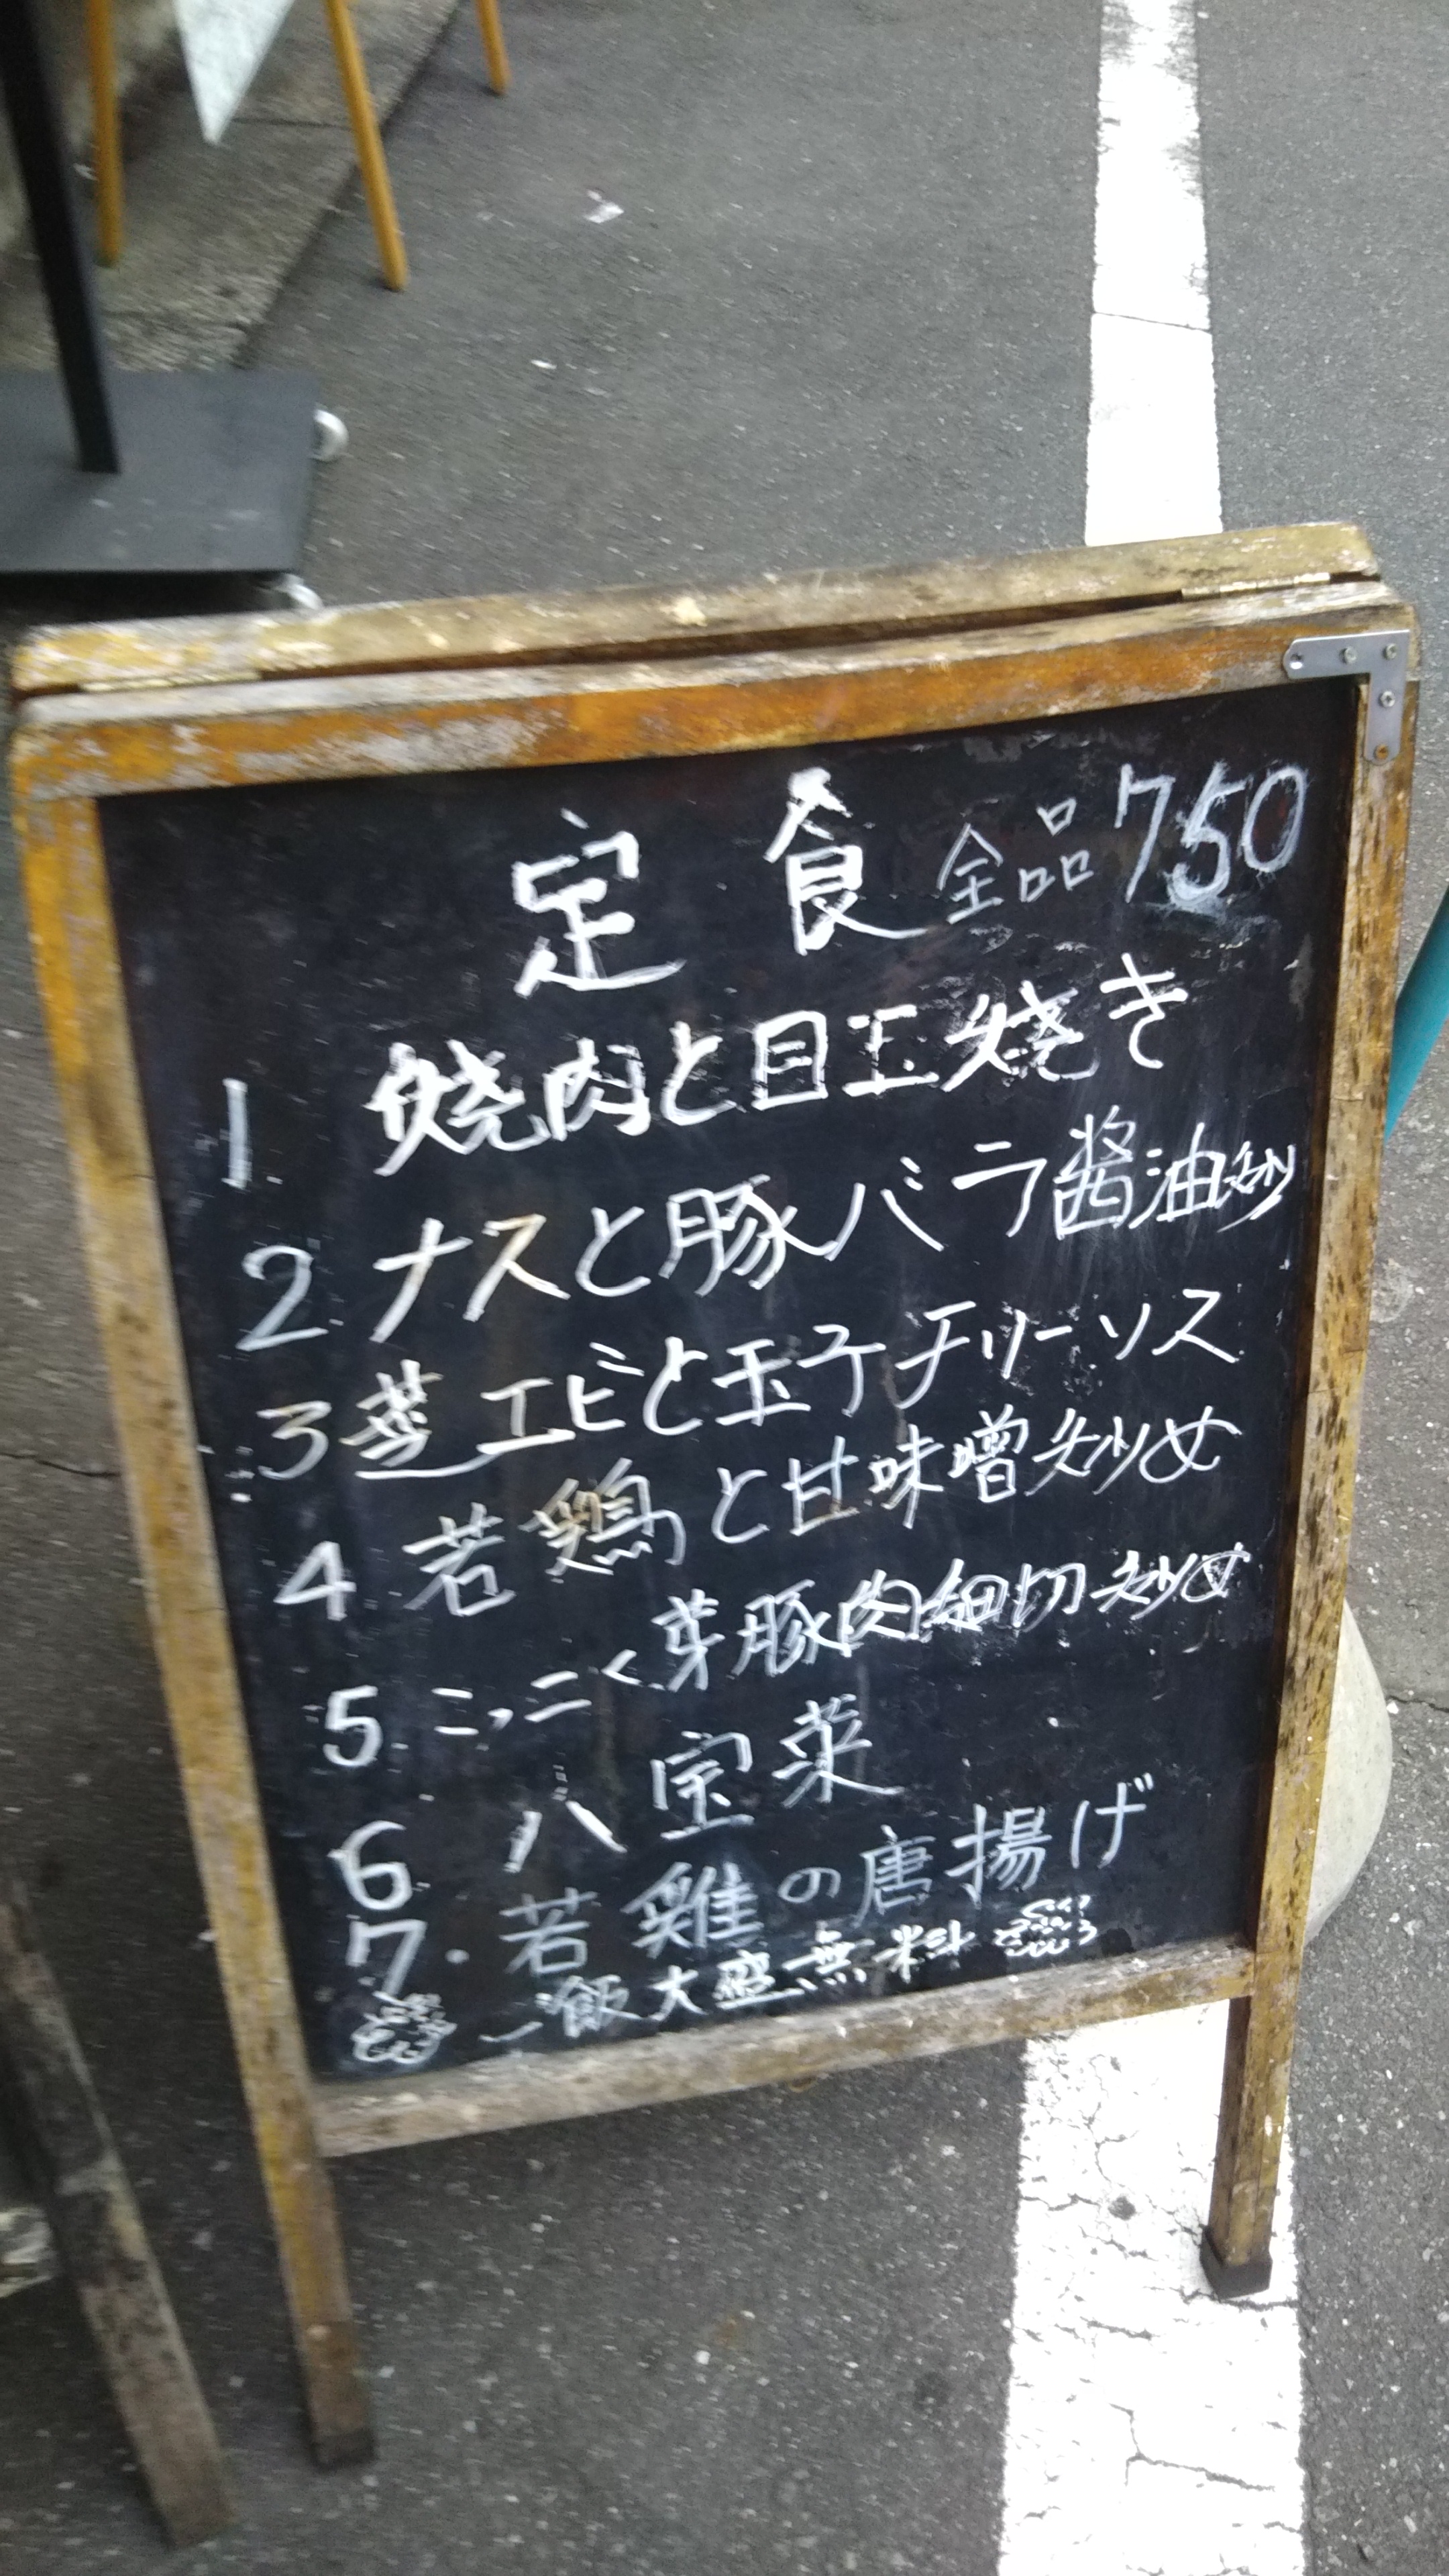 定食 全品750
1. 焼肉と目玉焼き
2 ナスと豚バラ醤油炒
3 芝エビと玉子チリーソス
4 若鶏と甘味噌炒め
5. ニンニク芽豚肉細切炒め
6. 八宝菜
7. 若雞の唐揚げ
ご飯大盛無料